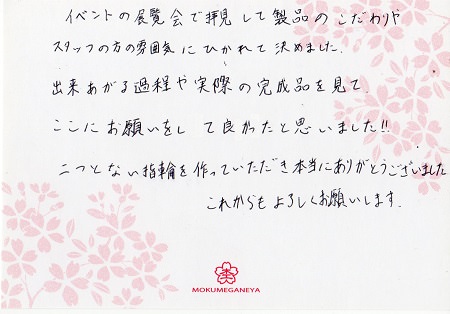 イベントの展覧会で拝見して製品のこだわりや
スタッフの方の雰囲気にひかれて決めました。
出来あがる過程や実際の完成品を見て、
ここにお願いをして良かったと思いました!!
二つとない指輪を作っていただき本当にありがとうございました
これからもよろしくお願いします.
MOKUMEGANEYA